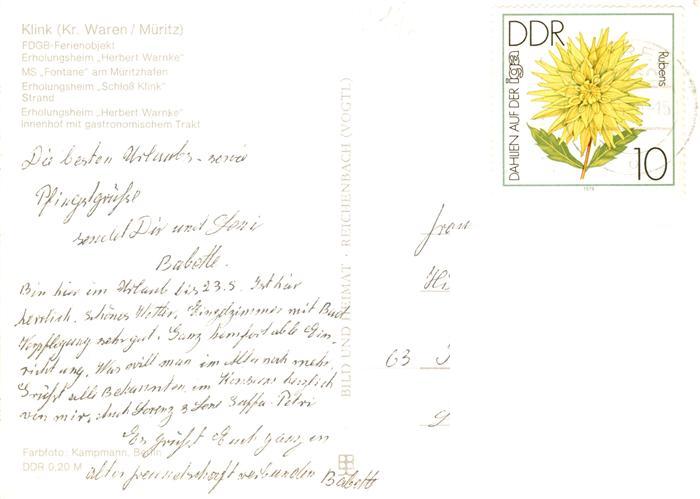 Klink (Kr. Waren / Müritz)
FDGB-Ferienobjekt
Erholungsheim „Herbert Warnke"
MS „Fontane" am Müritzhafen
Erholungsheim „Schloß Klink"
Strand
Erholungsheim „Herbert Warnke"
Innenhof mit gastronomischem Trakt
Die besten Urlaubs- sowie
Pfingstgrüße
sendet Dir und Leni
Babette.
Bin hier im Urlaub bis 23.5. Ist hier
herrlich. Schönes Wetter, Einzelzimmer mit Bad
Verpflegung sehr gut. Ganz komfortable Ein-
richtung. Was will man im Alter noch mehr.
Grüßt alle Bekannten im herzlich
von mir, auch Lorenz &
Es grüßt Euch ganz in
alter Freundschaft verbunden Babette
Farbfoto: Kampmann, Berlin
DDR 0,20 M
BILD UND HEIMAT · REICHENBACH (VOGTL)
DDR
DAHLIEN AUF DER iga
Rubens
10
1979
Frau
Hi
63